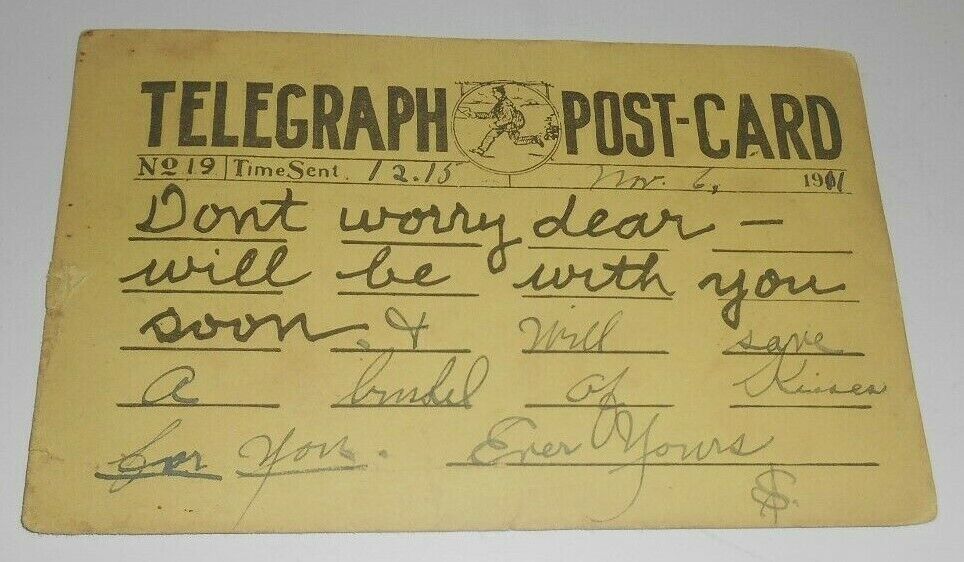 TELEGRAPH POST-CARD
No 19 Time Sent 12.15 Nov. 6, 1911
Dont worry dear —
will be with you
soon. & Will save
a bundel of Kisses
for You. Ever Yours
S.